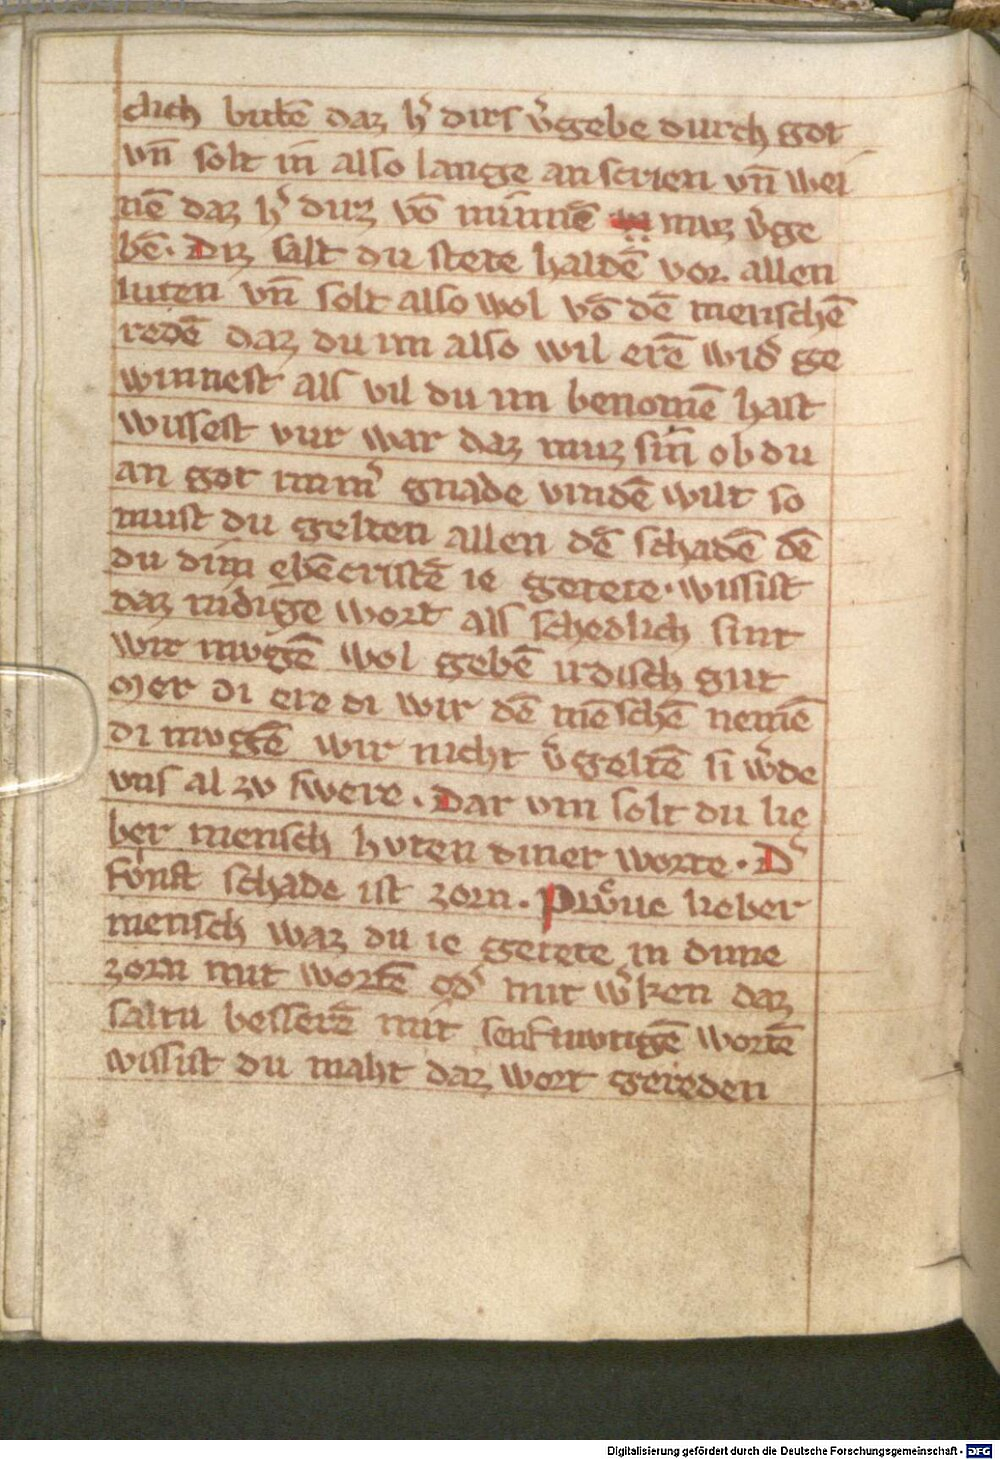 clich butē daz h͛ dirs v͛gebe durch got
vn̄ solt in also lange an scrien vn̄ wei
nē daz h͛ duz vō minnē muz v͛ge
bē. Diz salt du stete haldē vor allen
luten vn̄ solt also wol vō dē menschē
redē daz du im also wil erē wid͛ ge
winnest als vil du im benomē hast
wissest vur war daz muz sin̄ ob du
an got imm͛ gnade vindē wilt so
must du gelten allen dē schadē dē
du dim ebēcristē ie getete. wissist
daz nidige wort als schedlich sint
wir mvgē wol gebē irdisch gut
Mer di ere di wir dē mēschē nemē
di mvgē wir nicht v͛geltē si w͛de
vns al zv swere. Dar vm solt du lie
ber mensch hvten diner worte. D͛
fvnft schade ist zorn. Prwͦue lieber
mensch waz du ie getete in dime
zorn mit wortē od͛ mit w͛ken daz
saltu besserē mit senftmvtigē wortē
wissist du maht daz wort gereden
Digitalisierung gefördert durch die Deutsche Forschungsgemeinschaft - DFG